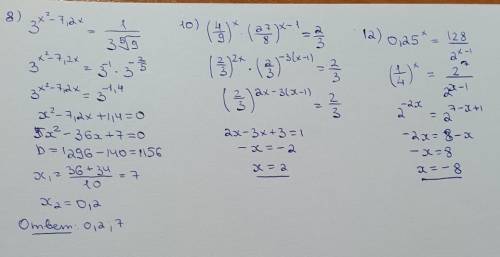 8) 3^{x²-7,2x} = 1/(3⁵√9)
3^{x²-7,2x} = 3^{-1} · 3^{-2/5}
3^{x²-7,2x} = 3^{-1,4}
x²-7,2x+1,4=0
5x²-36x+7=0
D=1296-140=1156
x₁ = (36+34)/10 = 7
x₂ = 0,2
Ответ: 0,2, 7
10) (4/9)^x · (27/8)^{x-1} = 2/3
(2/3)^{2x} · (2/3)^{-3(x-1)} = 2/3
(2/3)^{2x-3(x-1)} = 2/3
2x-3x+3=1
-x=-2
x=2
12) 0,25^x = 128/2^{x-1}
(1/4)^x = 2^7/2^{x-1}
2^{-2x} = 2^{7-x+1}
-2x=8-x
-x=8
x=-8